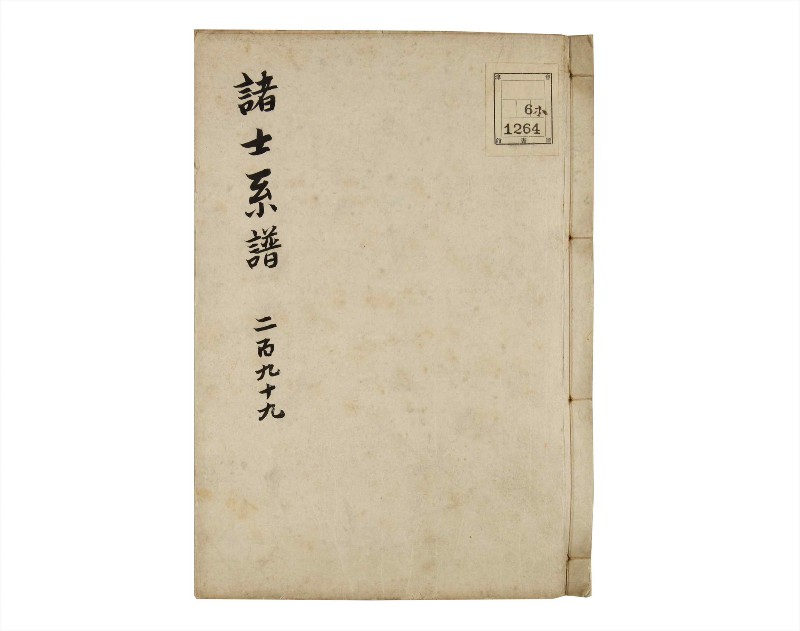 諸士系譜 二百九十九
6小
1264